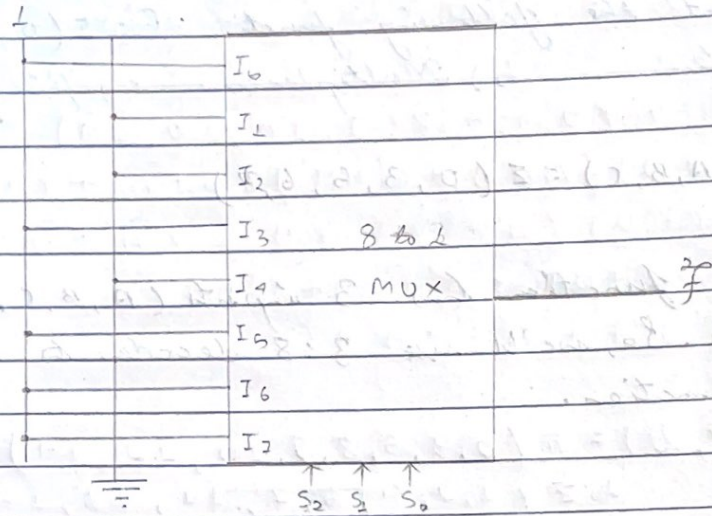 1
I0
I1
I2
I3 8 to 1
I4 MUX F
I5
I6
I7
S2 S1 S0